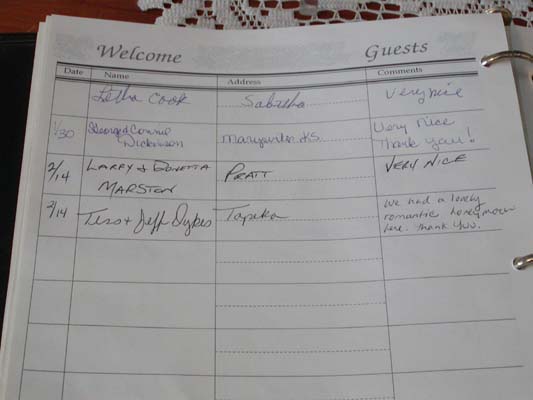 Welcome Guests
Date Name Address Comments
Letha Cook Sabetha Very nice
1/30 George & Connie Dickinson Marysville KS. Very Nice
Thank you!
2/14 LARRY & DONETTA PRATT VERY NICE
MARSTON
2/14 Tess & Jeff Dykes Topeka We had a lovely
romantic honeymoon
here. Thank you.